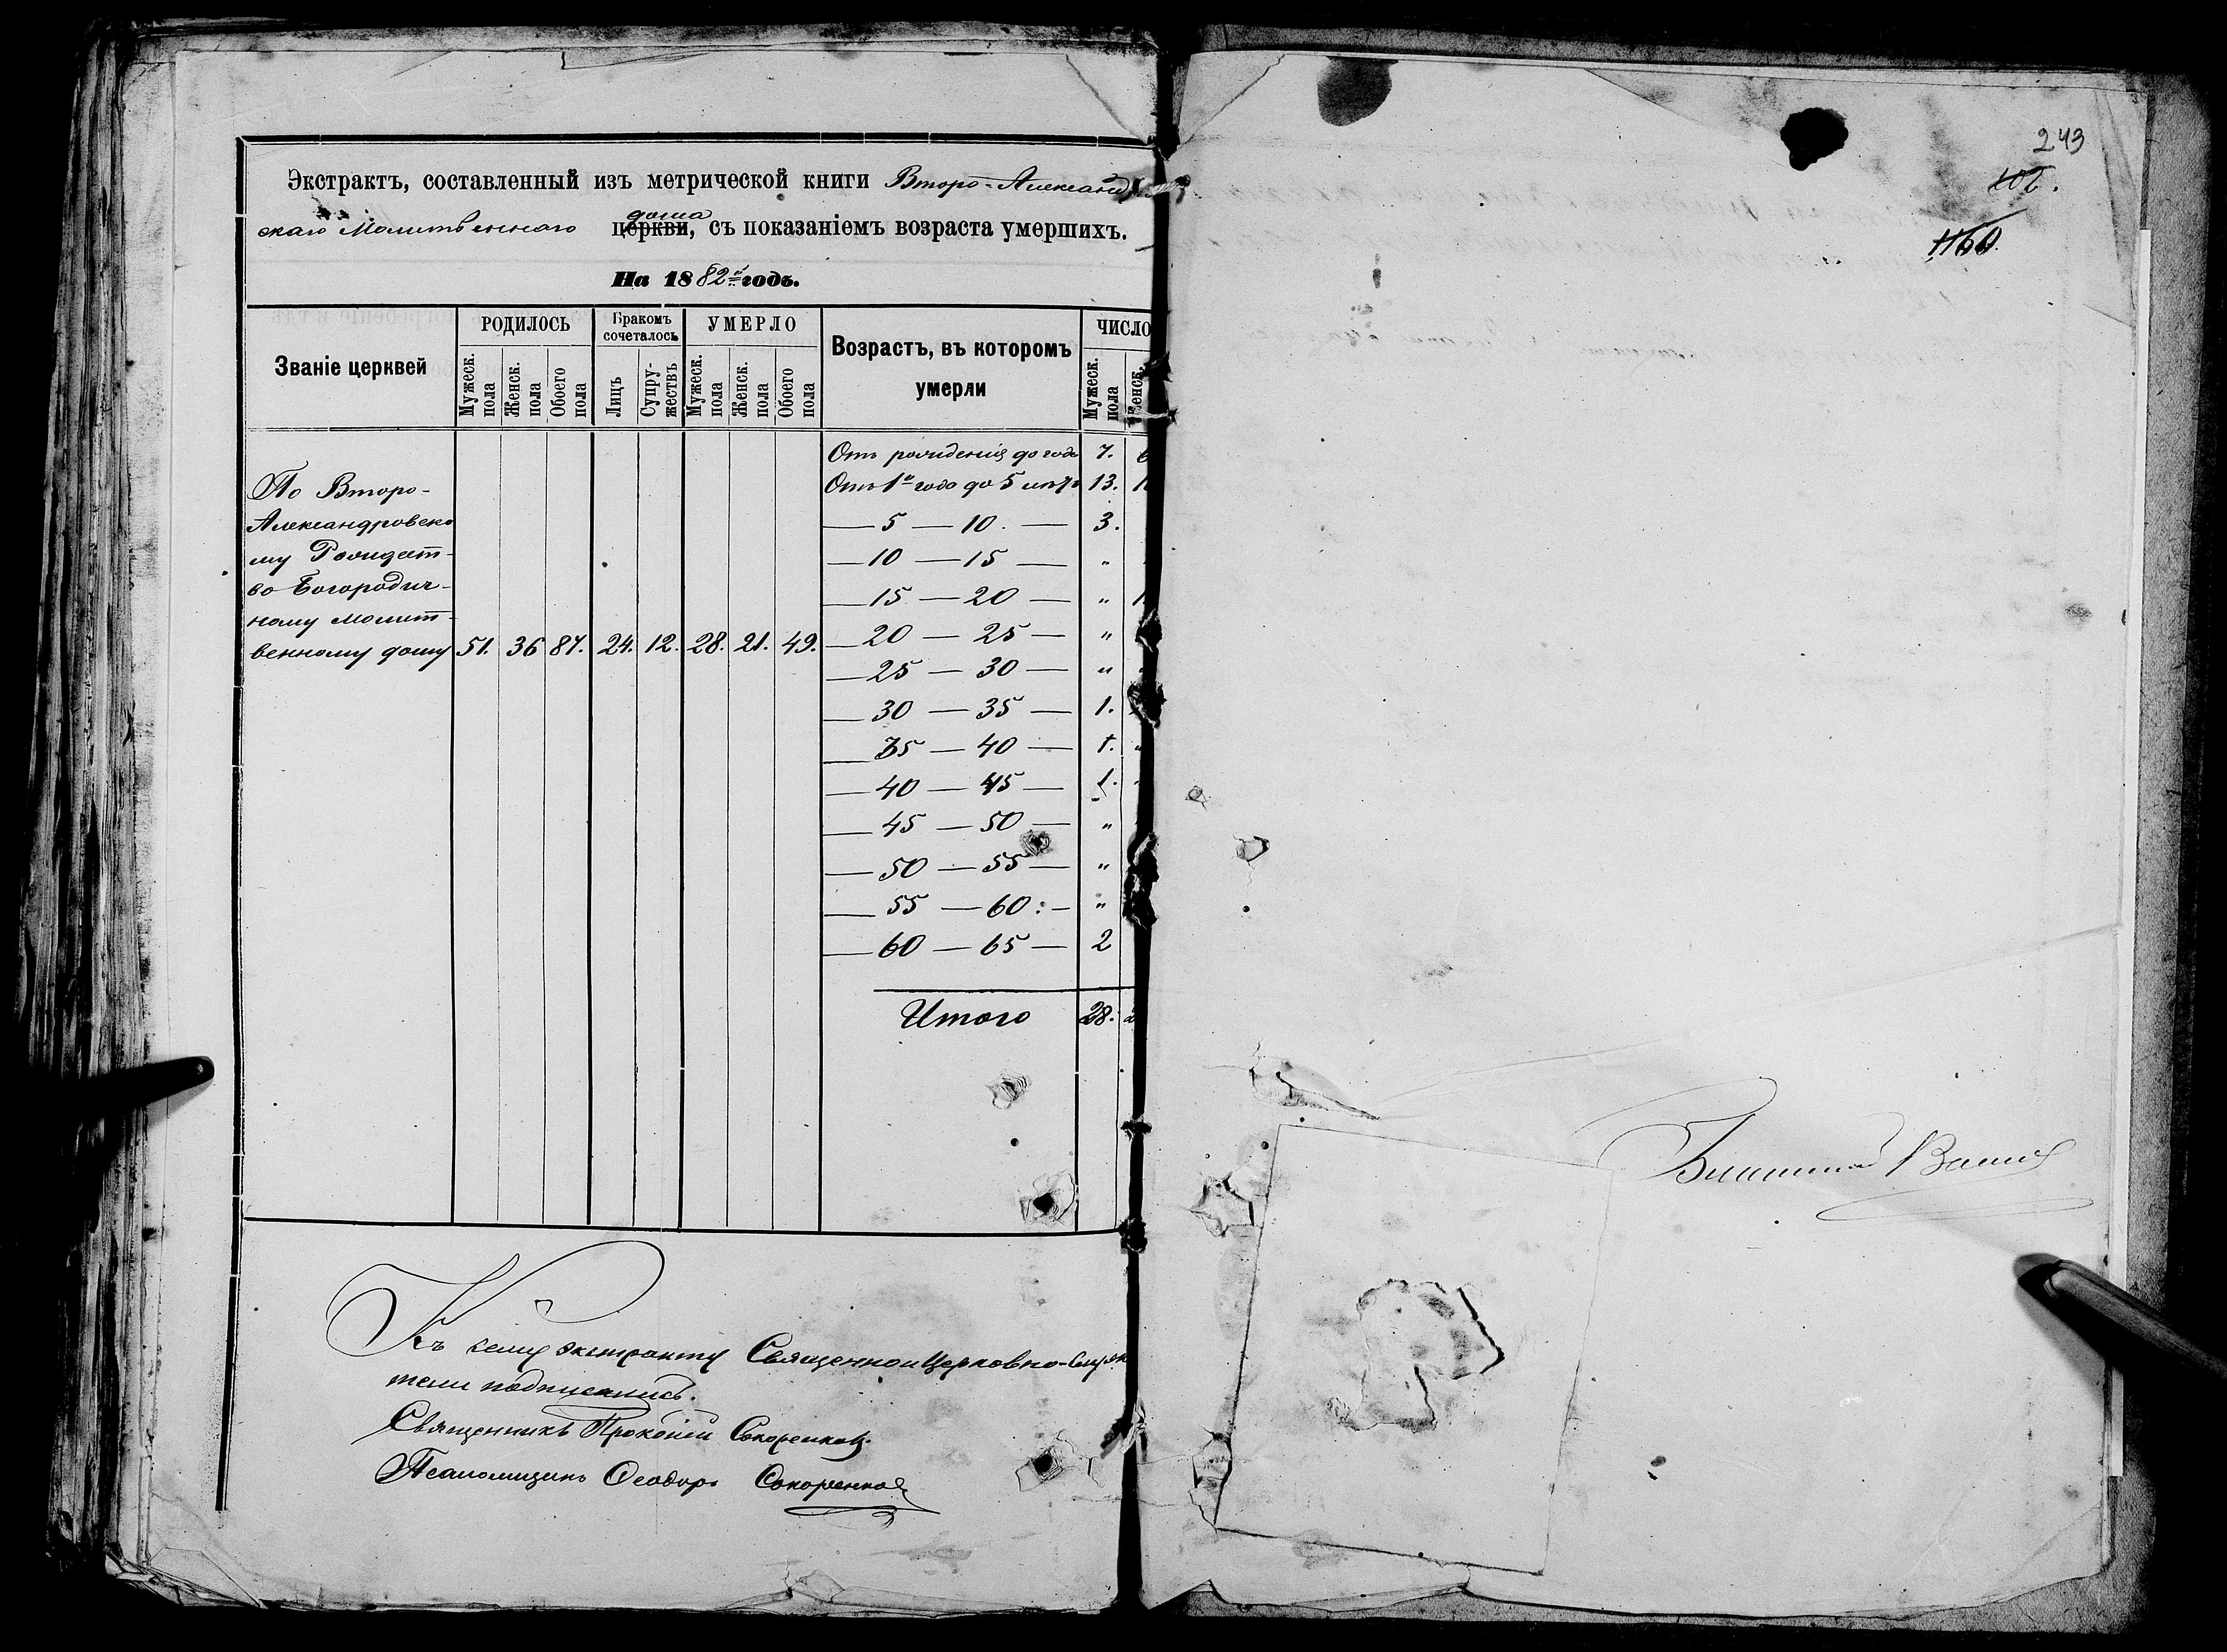 Экстрактъ, составленный изъ метрической книги Второ-Александ
скаго Молитвеннаго церкви дома, съ показаніемъ возраста умершихъ.
На 1882й годъ.
Званіе церквей РОДИЛОСЬ Бракомъ сочеталось УМЕРЛО Возрастъ, въ которомъ умерли ЧИСЛО
Мужеск. пола Женск. пола Обоего пола Лицъ Супружествъ Мужеск. пола Женск. пола Обоего пола Мужеск. пола Женск.
Отъ рожденія до года 7. 6
По Второ- Отъ 1го года до 5 лѣтъ 13.
Александровско- — 5 — 10. — 3.
му Рождест- — 10 — 15 — "
во-Богородич- — 15 — 20 — "
ному молит-
венному дому 51. 36 87. 24. 12. 28. 21. 49. — 20 — 25 — "
— 25 — 30 — "
— 30 — 35 — 1.
— 35 — 40 — 1. "
— 40 — 45 — 1.
— 45 — 50 — "
— 50 — 55 — "
— 55 — 60: — "
— 60 — 65 — 2
Итого 28. 2
Къ сему экстракту Священно и Церковно-служ
тели подписались.
Священникъ Прокопій
Псаломщикъ Ѳеодоръ
243
102.
1160.